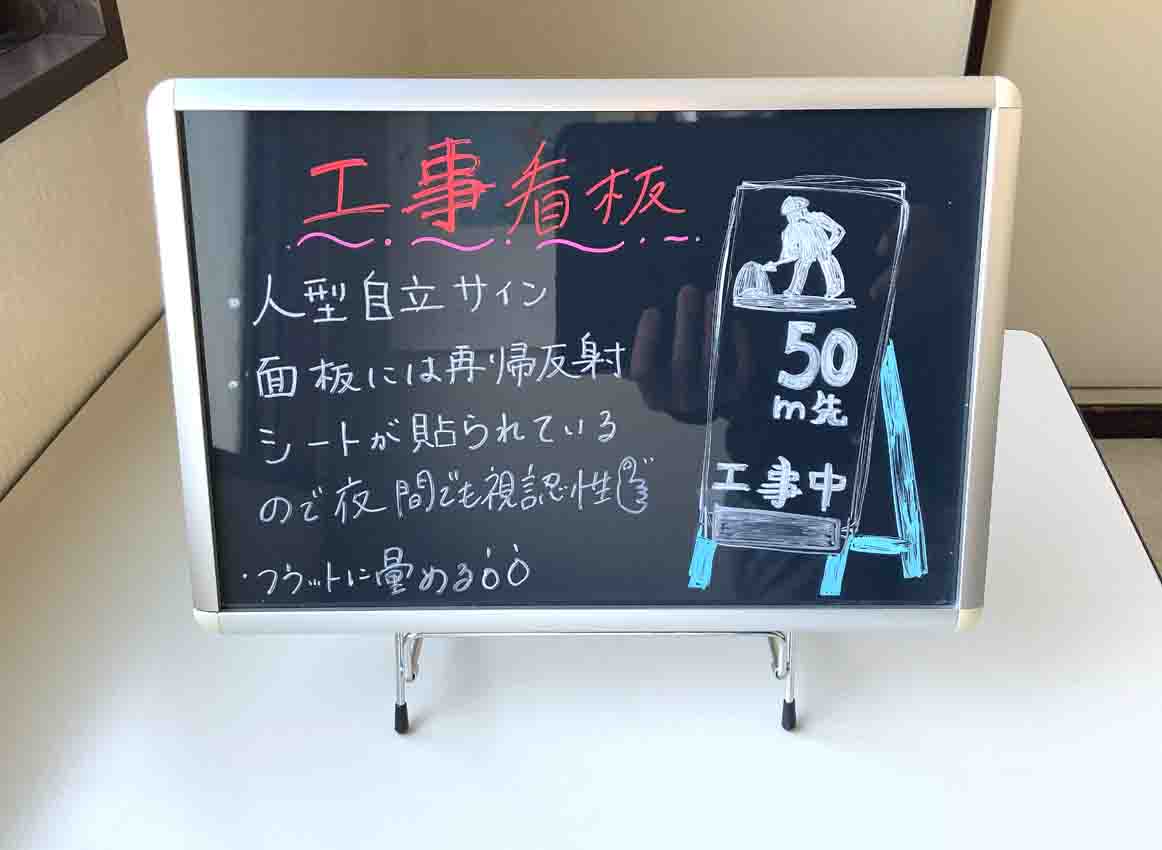 工事看板
・人型自立サイン
・面板には再帰反射
シートが貼られている
ので夜間でも視認性
・フラットに畳める
50
m先
工事中